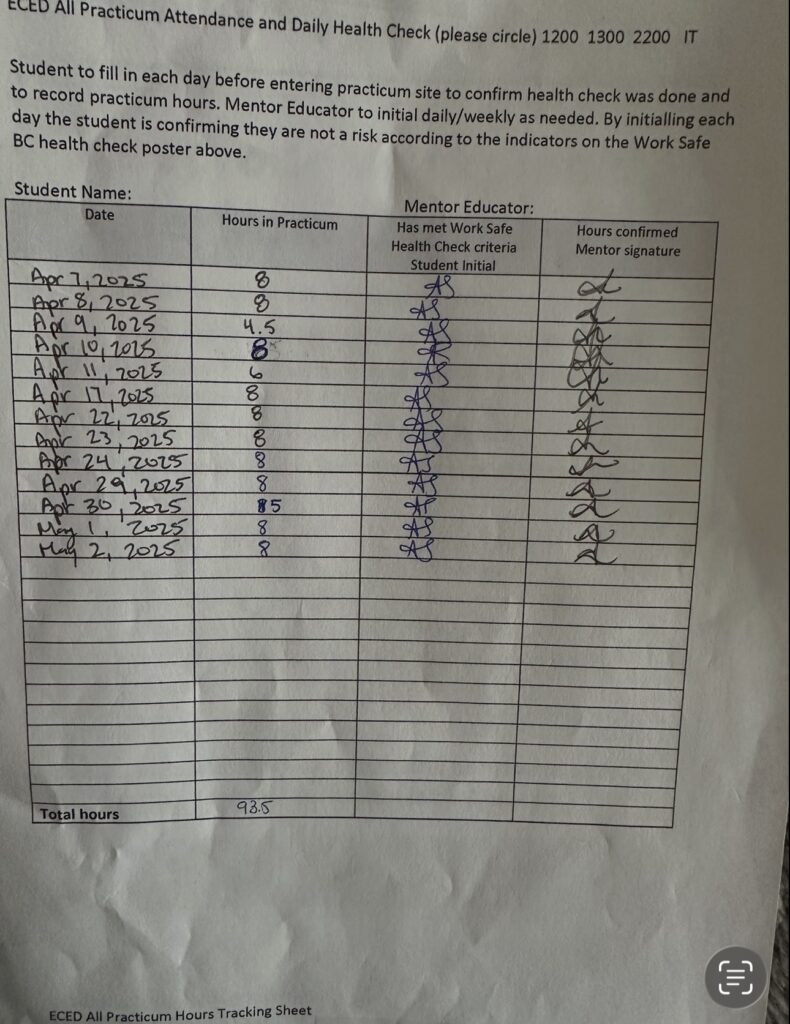 ECED All Practicum Attendance and Daily Health Check (please circle) 1200 1300 2200 IT
Student to fill in each day before entering practicum site to confirm health check was done and
to record practicum hours. Mentor Educator to initial daily/weekly as needed. By initialling each
day the student is confirming they are not a risk according to the indicators on the Work Safe
BC health check poster above.
Student Name:
Mentor Educator:
Date
Hours in Practicum
Has met Work Safe
Health Check criteria
Student Initial
Hours confirmed
Mentor signature
Apr 7, 2025 8 AS
Apr 8, 2025 8 AS
Apr 9, 2025 4.5 AS
Apr 10, 2025 8 AS
Apr 11, 2025 6 AS
Apr 17, 2025 8 AS
Apr 22, 2025 8 AS
Apr 23, 2025 8 AS
Apr 24, 2025 8 AS
Apr 29, 2025 8 AS
Apr 30, 2025 5 AS
May 1, 2025 8 AS
May 2, 2025 8 AS
Total hours 93.5
ECED All Practicum Hours Tracking Sheet